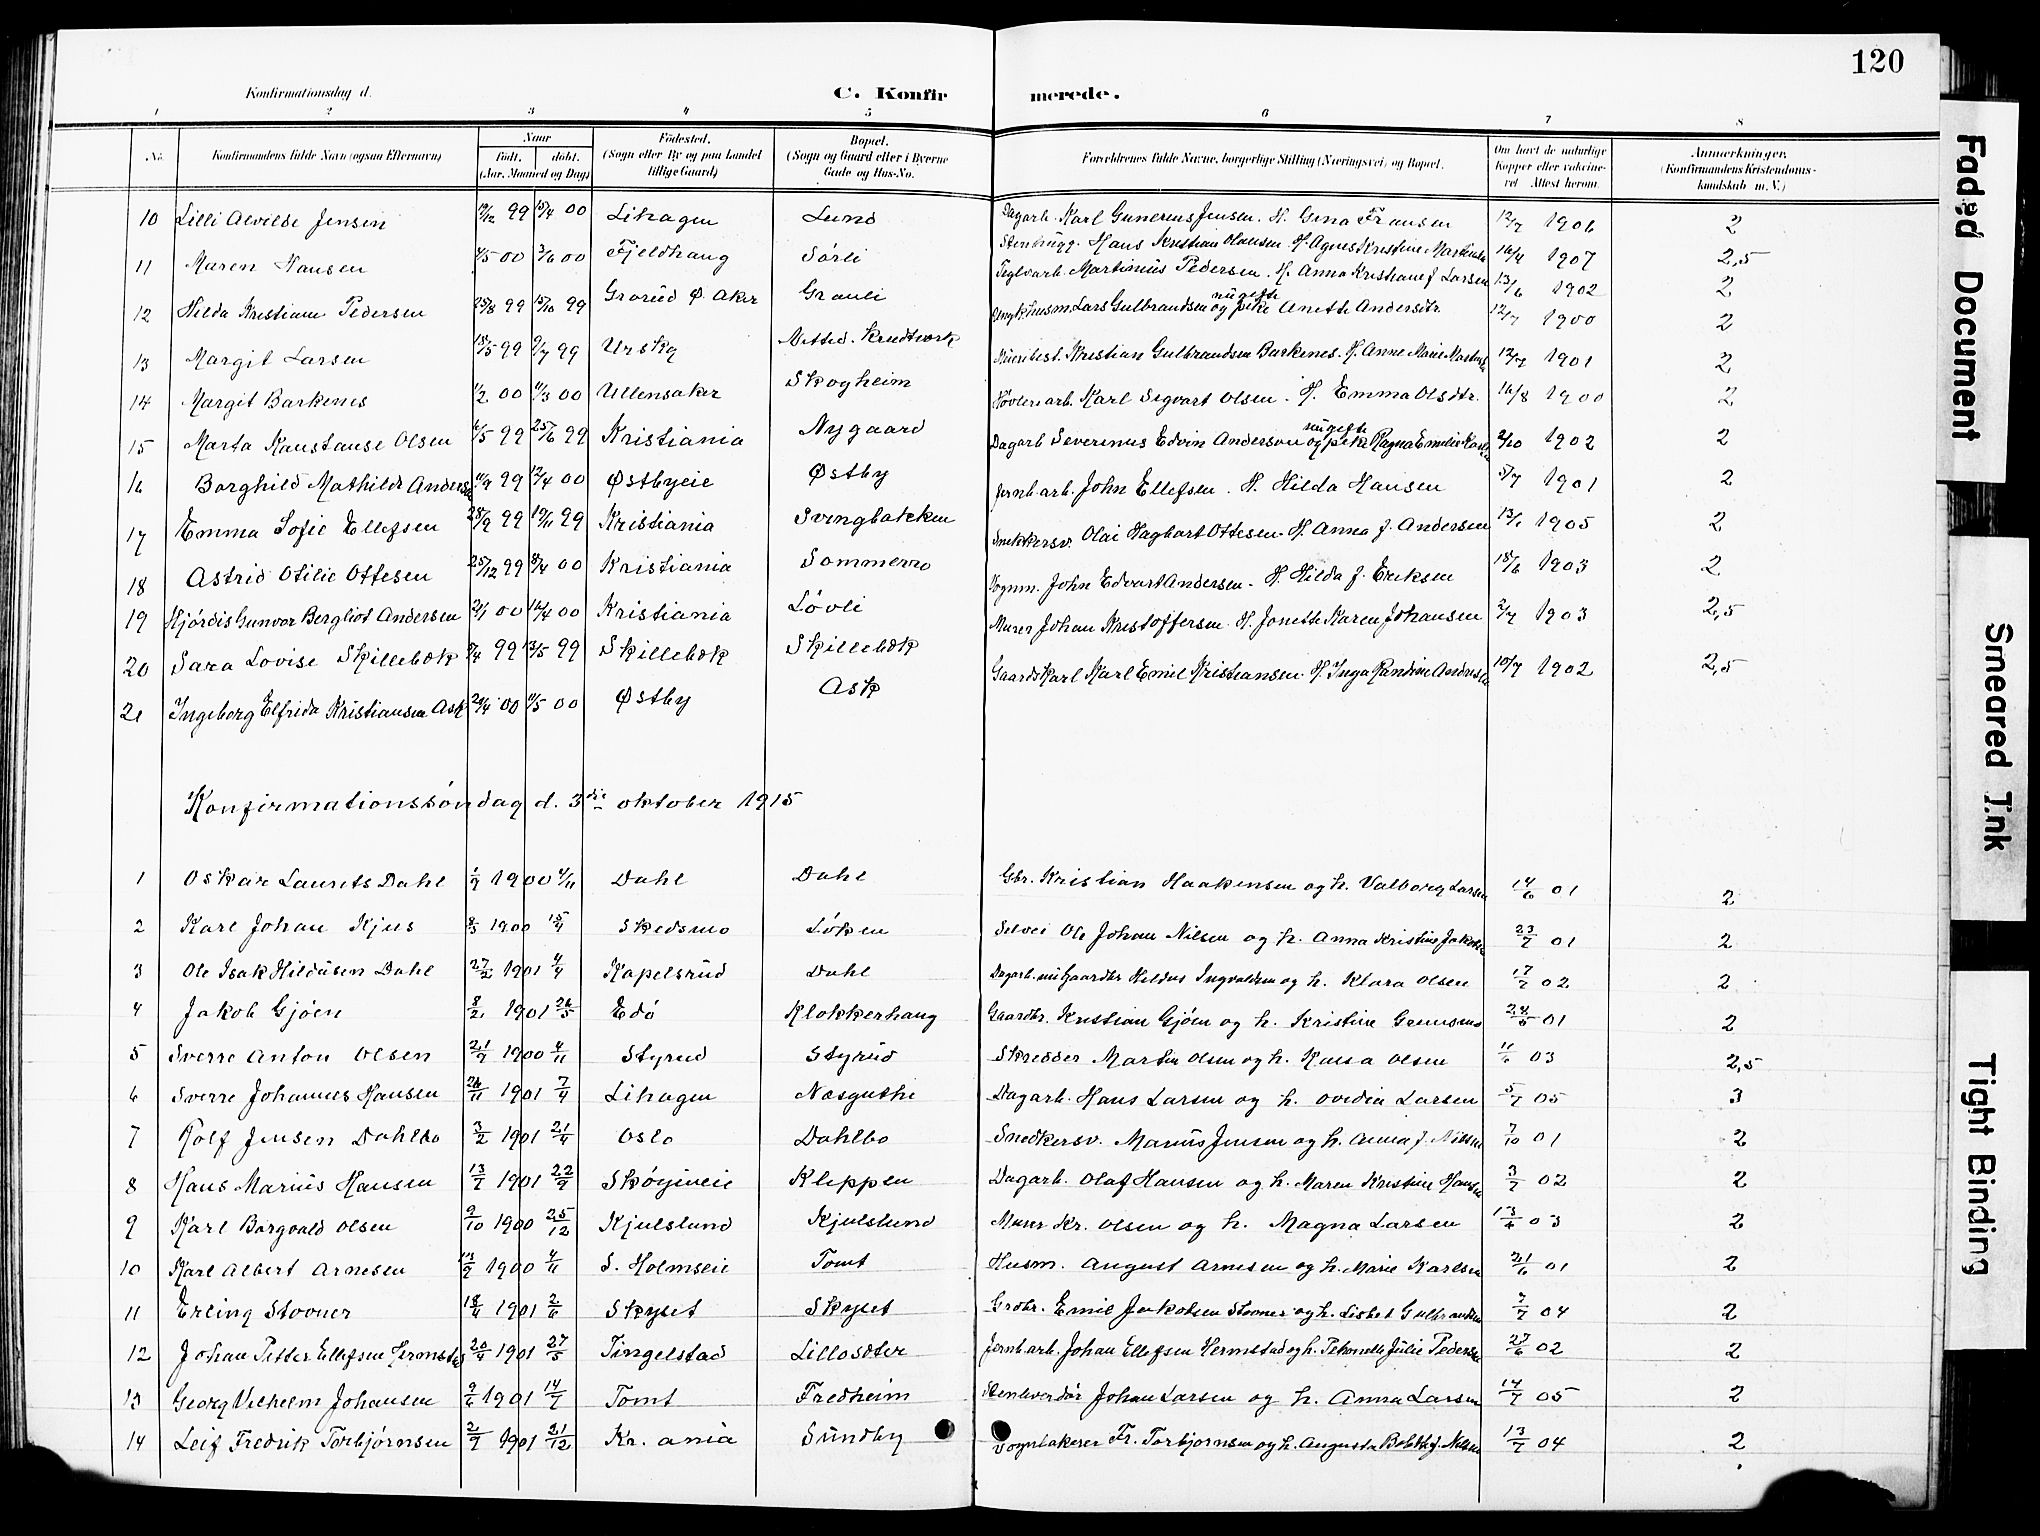 120
Konfirmationsdag d.
C. Konfirmerede.
1 2 3 4 5 6 7 8
No. Konfirmandens fulde Navn (ogsaa Efternavn) Naar født. døbt. (Aar, Maaned og Dag) Fødested. (Sogn eller By og paa Landet tillige Gaard) Bopæl. (Sogn og Gaard eller i Byerne Gade og Hus-No. Forældrenes fulde Navne, borgerlige Stilling (Næringsvei) og Bopæl. Om havt de naturlige Kopper eller vakcineret Attest herom. Anmærkninger. (Konfirmandens Kristendomskundskab m. V.)
10 Lilli Alvilde Jensen 19/12 99 15/4 00 Lihagen Lund Dagarb. Karl Gunerius Jensen. H. Gina Fransen 12/7 1906 2
11 Maren Hansen 4/5 00 3/6 00 Fjeldhaug Sörli Stenhugg. Hans Kristian Olausen H. Agnes Kristine Martinsen 16/4 1907 2,5
12 Hilda Kristiane Pedersen 25/8 99 15/10 99 Grorud Ø. Aker Grauli Teglvarb. Martinius Pedersen. H. Anna Kristiane f. Larsen 13/6 1902 2
13 Margit Larsen 18/5 99 9/7 99 Urskg Nitted. Krudtverk Husm. Lars Gulbrandsen og ugifte pike Anette Andersdtr. 12/7 1900 2
14 Margit Barkenes 1/2 00 11/3 00 Ullensaker Skogheim Kristian Gulbrandsen Barkenes. H. Anne Marie 12/7 1901 2
15 Marta Konstanse Olsen 4/5 99 25/6 99 Kristiania Nygaard Høvleriarb. Karl Segvart Olsen. H. Emma Olsdtr. 16/8 1900 2
16 Borghild Mathilde Andersen 11/9 99 12/4 00 Østbyeie Østby Dagarb Severinus Edvin Anderson og ugifte pike Ragna Emelie 2/10 1902 2
17 Emma Sofie Ellefsen 28/9 99 19/11 99 Kristiania Svingbakken Jernb.arb. John Ellefsen. H. Hilda Hansen 5/7 1901 2
18 Astrid Otilie Ottesen 25/12 99 8/4 00 Kristiania Sommerro Snekkersv. Olai Hagbart Ottesen. H. Anna f. Andersen 13/1 1905 2
19 Hjördis Gunvor Bergliot Andersen 2/1 00 16/4 00 Kristiania Lövli Vognm. John Edvart Andersen. H. Hilda f. Eriksen 18/6 1903 2
20 Sara Lovise Skillebæk 2/4 99 13/5 99 Skillebæk Skillebæk Murer Johan Kristoffersen. H. Jonette Karen Johansen 2/7 1903 2,5
21 Ingeborg Elfrida Kristiansen Ask 24/4 00 11/5 00 Østby Ask Gaardskarl Karl Emil Kristiansen. H. Inga Randine Andresen 10/7 1902 2,5
Konfirmationssøndag d. 3die oktober 1915
1 Oskar Laurits Dahl 1/9 1900 4/11 Dahl Dahl Gbr. Kristian Haakensen og h. Valborg Larsen 14/6 01 2
2 Karl Johan Kjus 8/3 1900 15/4 Skedsmo Løken Selvei Ole Johan Nilsen og h. Anna Kristine 23/7 01 2
3 Ole Isak Hildusen Dahl 27/2 1901 4/4 Kapelsrud Dahl Dagarb. nu Gaardbr Hildus Ingvaldsen og h. Klara Olsen 17/7 02 2
4 Jakob Gjöen 8/2 1901 26/5 Edö Klokkerhaug Gaardbr. Kristian Gjöen og h. Kristine 01 2
5 Sverre Anton Olsen 21/9 1900 4/11 Styrud Styrud Skredder Martin Olsen og h. Kaisa Olsen 11/6 03 2,5
6 Sverre Johannes Hansen 26/11 1901 7/4 Lihagen Næsguthi Dagarb. Hans Larsen og h. Ovedia Larsen 5/7 05 3
7 Rolf Jensen Dahlbo 3/2 1901 21/4 Oslo Dahlbo Snedkersv. Marius Jensen og h. Anna f. Nilsen 7/10 01 2
8 Hans Marius Hansen 13/7 1901 22/9 Skøyeneie Kleppen Dagarb. Olaf Hansen og h. Maren Kristine Hansen 3/7 02 2
9 Karl Borgvald Olsen 9/10 1900 25/12 Kjulslund Kjulslund Murer Kr. Olsen og h. Magna Larsen 13/6 03 2
10 Karl Albert Arnesen 13/9 1900 4/11 S. Holmseie Tomt Husm. August Arnesen og h. Marie Karlsen 21/6 01 2
11 Erling Stovner 18/4 1901 2/6 Skyset Skyset Grdbr. Emil Jakobsen Stovner og h. Lisbet Gulbrandsen 7/7 04 2
12 Johan Petter Ellefsen Hermstad 20/4 1901 27/5 Tingelstad Lillosæter Jernb.arb. Johan Ellefsen Hermstad og h. Petronelle Julie Pedersen 27/6 02 2
13 Georg Vilhelm Johansen 9/6 1901 14/7 Tomt Fredheim Johan Larsen og h. Anna Larsen 14/7 05 2
14 Leif Fredrik Torbjørnsen 2/7 1901 21/12 Kr.ania Sundby Vognlakerer Fr. Torbjørnsen og h. Augusta f. Nilsen 13/7 04 2
Faded Document
Smeared Ink
Tight Binding